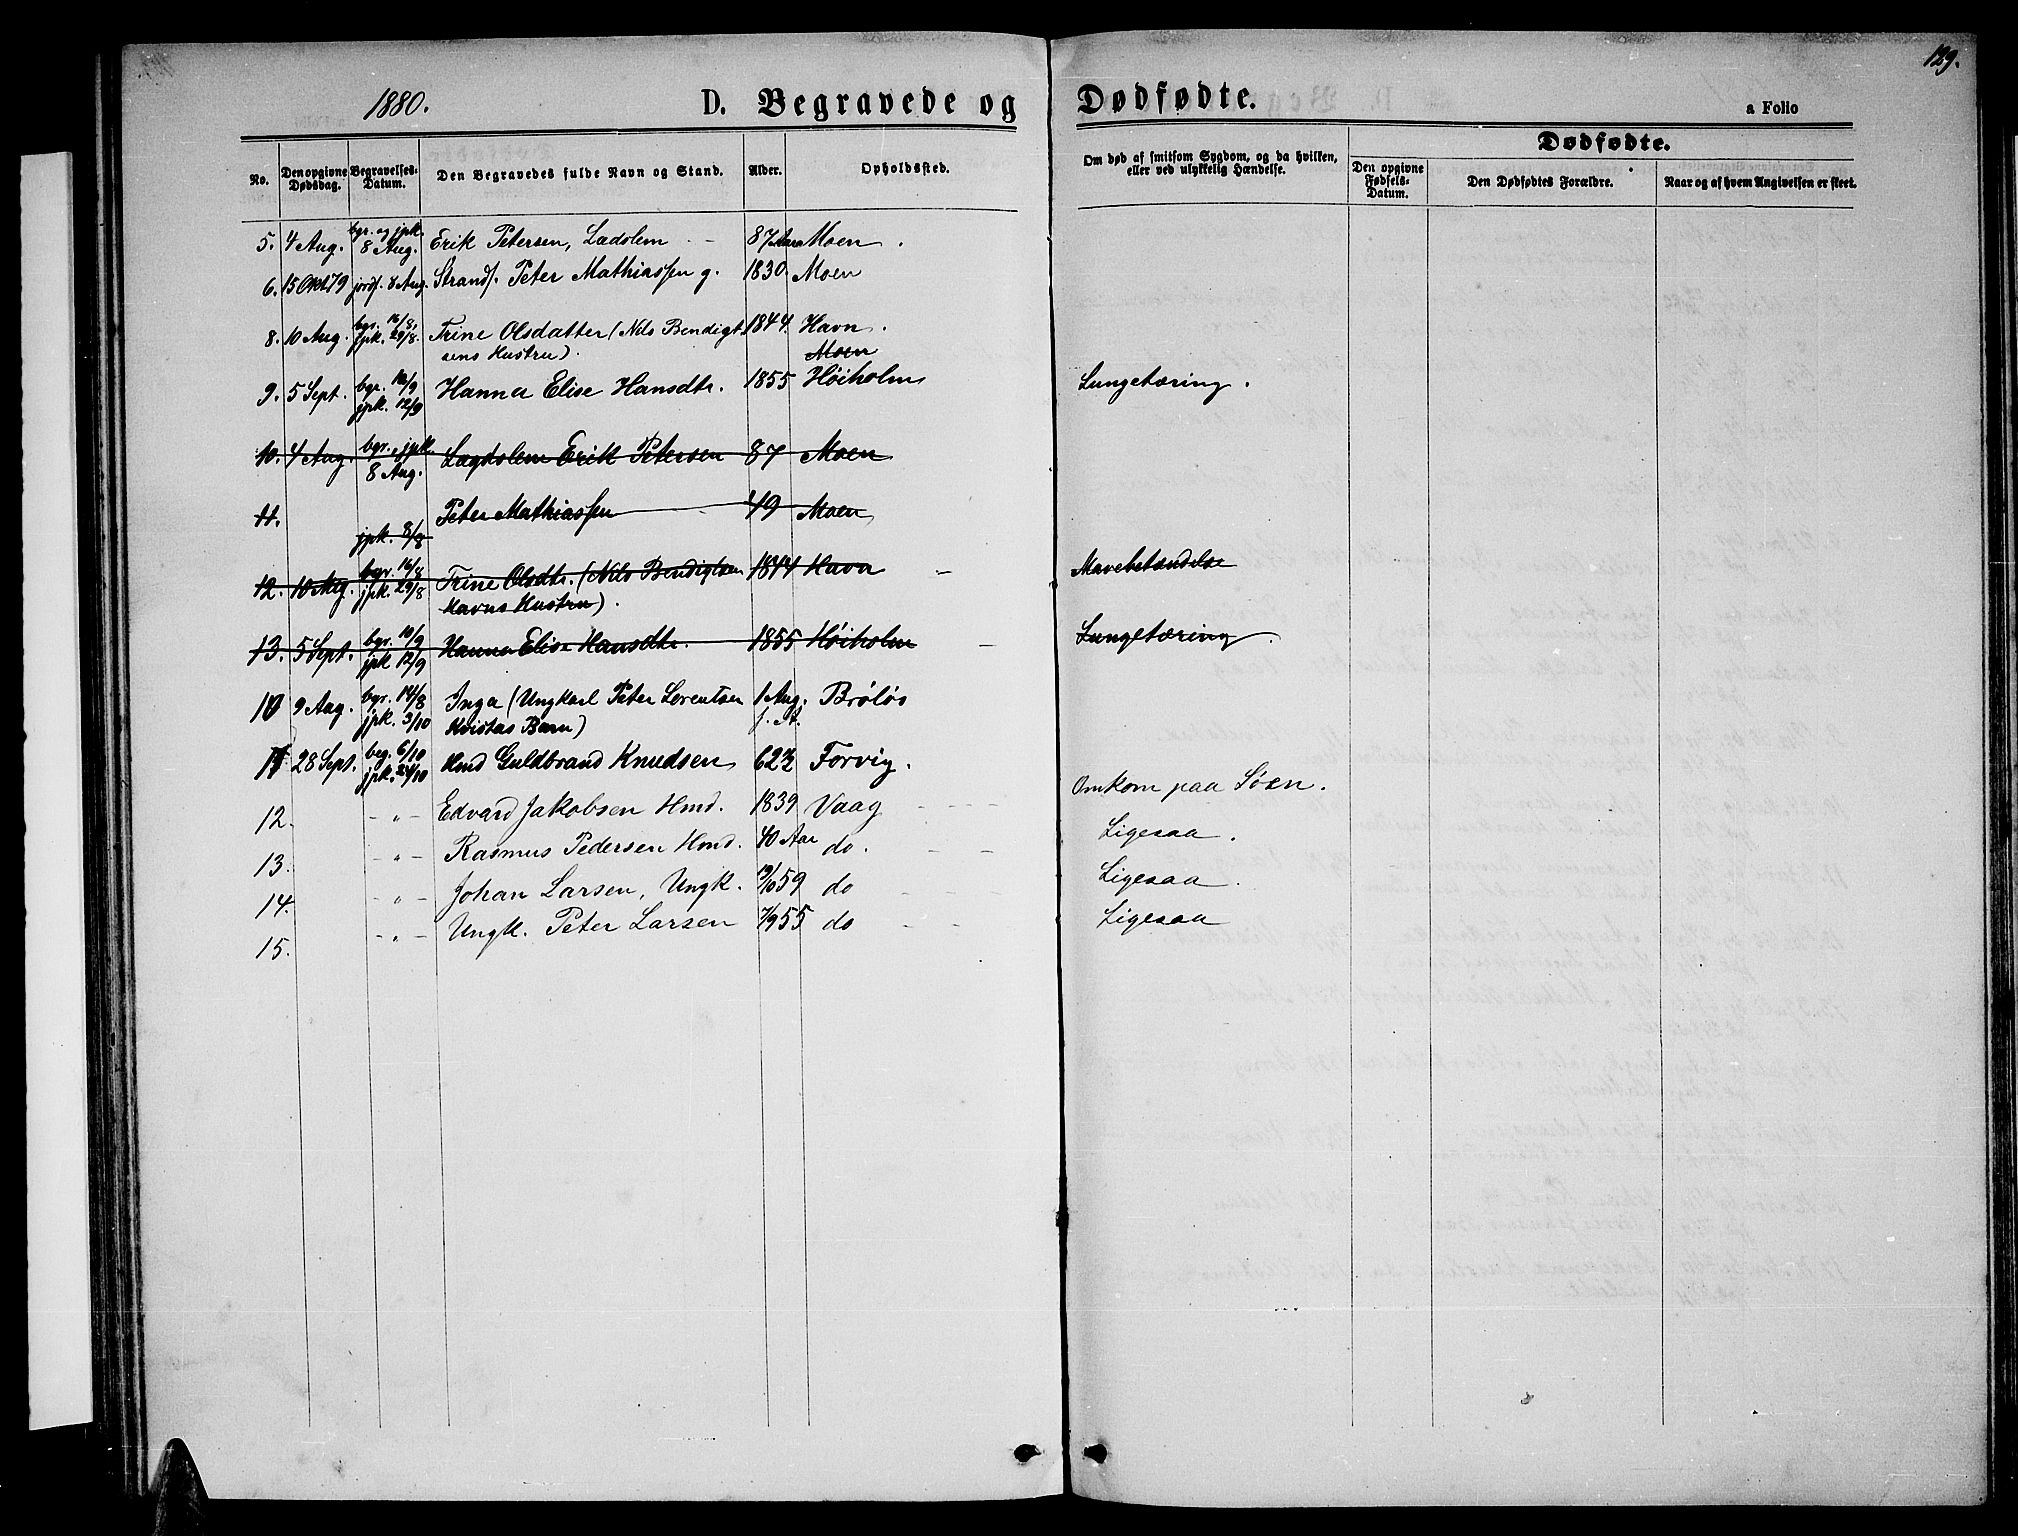 129.
1880. D. Begravede og Dødfødte. a Folio
No. Den opgivne Dødsdag. Begravelses-Datum. Den Begravedes fulde Navn og Stand. Alder. Opholdssted. Om død af smitsom Sygdom, og da hvilken, eller ved ulykkelig Hændelse. Dødfødte.
Den opgivne Fødsels-Datum. Den Dødfødtes Forældre. Naar og af hvem Angivelsen er skeet.
5. 4 Aug. bgr. og jpk. 8 Aug. Erik Petersen, Lædslem 87 Aar Moen.
6. 15 Okt 79 jordf. 8 Aug. Strands. Peter Mathiassen g. 1830. Moen
8. 10 Aug. bgr. 16/8, jpk. 29/8. Trine Olsdatter (Nils Bendigt- 1844. Havn.
sens Hustru). Moen
9. 5 Sept. bgr. 10/9 jpk. 12/9 Hanna Elise Hansdtr. 1855 Høiholm Lungetæring.
10. 4 Aug. bgr. jpk. 8 Aug. Lægdslem Erik Petersen 87 Moen
11. jpk. 8/8 Peter Mathiassen 49 Moen
12. 10 Aug. bgr. 16/8 jpk. 29/8 Trine Olsdtr. (Nils Bendigtsen 1844 Havn Mavebetændelse
Havns Hustru).
13. 5 Sept. bgr. 10/9 jpk 12/9 Hanna Elise Hansdtr. 1855 Høiholm Lungetæring.
10 9 Aug. bgr. 14/8 jpk. 3/10 Inga (Ungkarl Peter Lorentsen 1 Aug. Brøløs
Kvistas Barn) f. A.
11 28 Sept. beg. 6/10 jpk. 24/10 Hmd Guldbrand Knudsen 62 1/2 Forvig. Omkom paa Søen.
12. - " - Edvard Jakobsen Hmd. 1839 Vaag Ligesaa.
13. - " - Rasmus Pedersen Hmd. 40 Aar do. Ligesaa.
14. - " - Johan Larsen, Ungk. 19/10 59 do Ligesaa
15. - " - Ungk. Peter Larsen 7/9 55 do